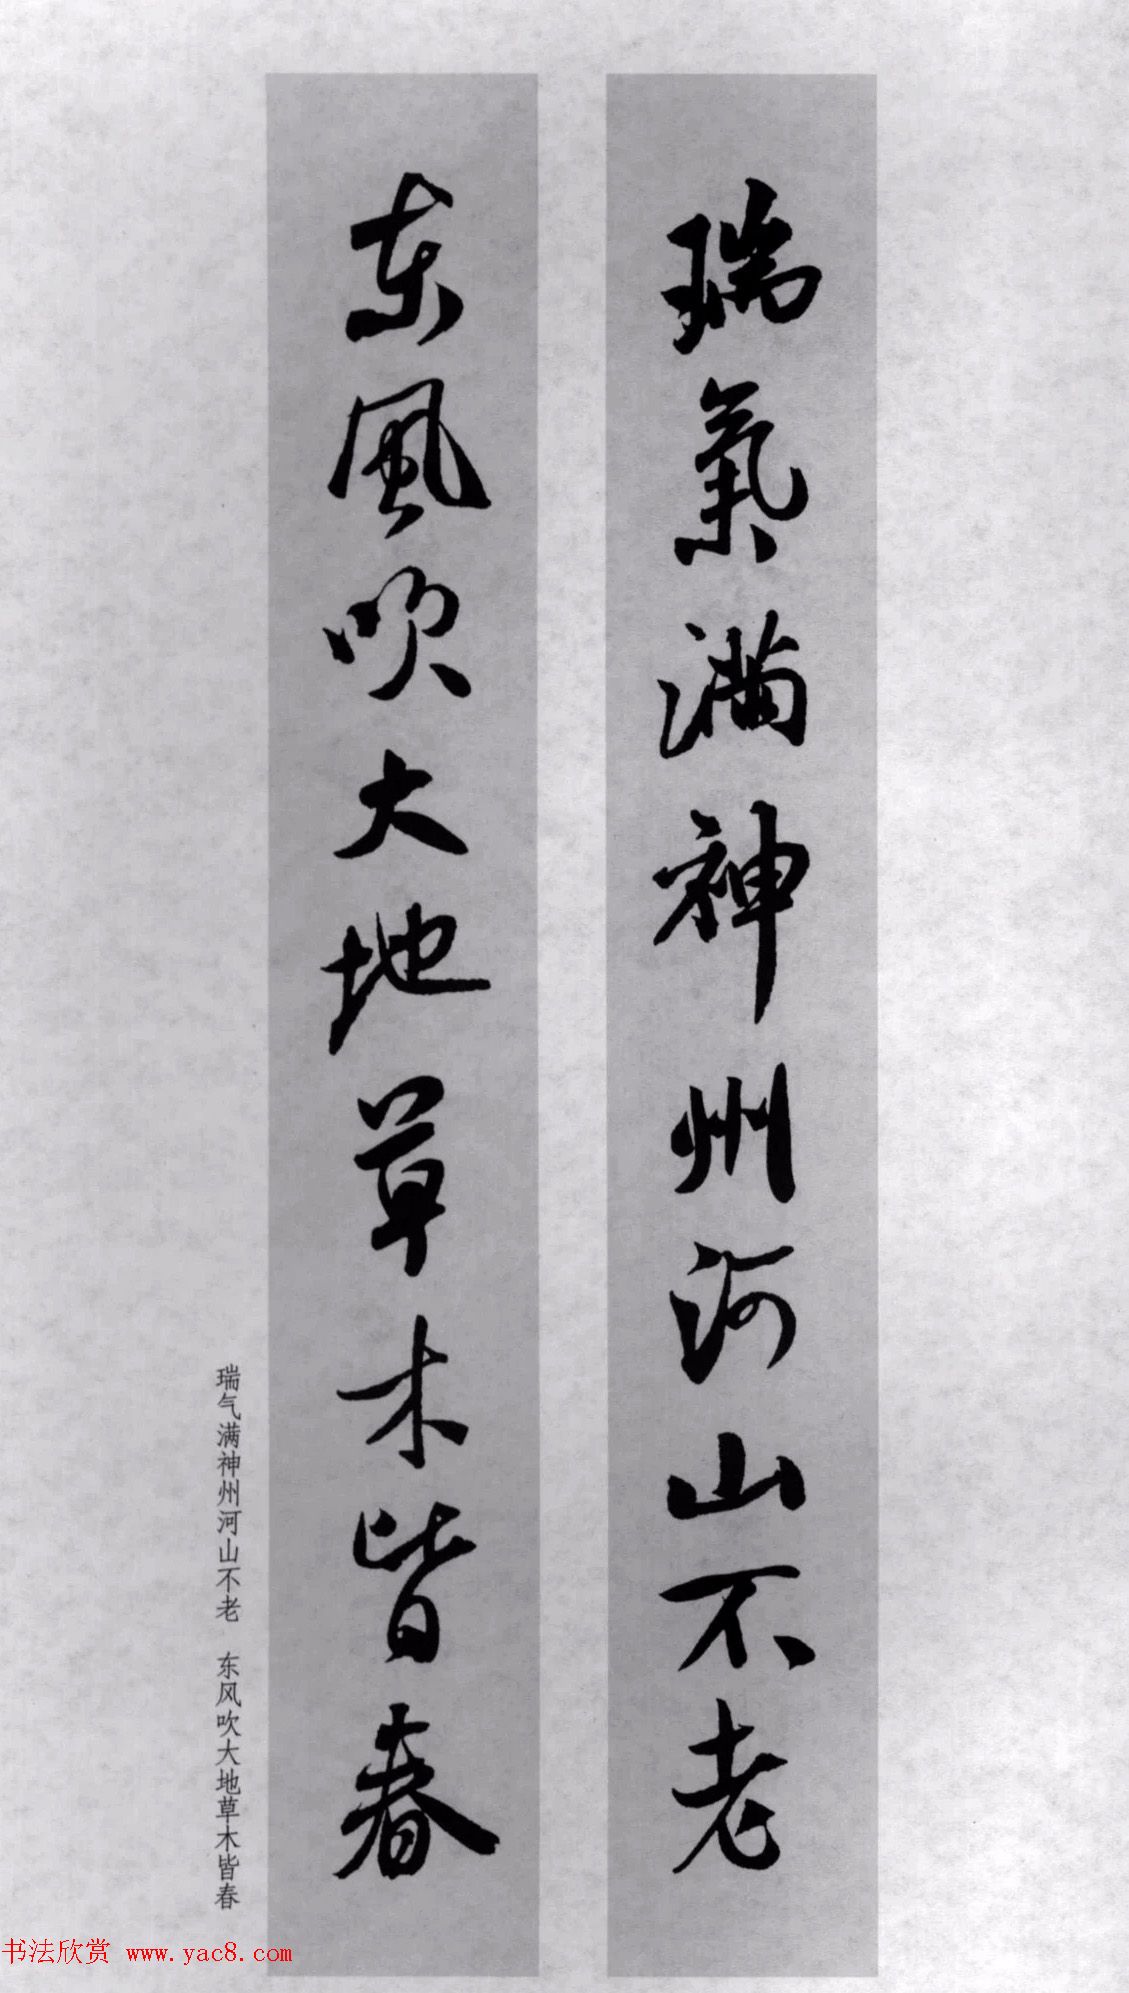 瑞氣满神州河山不老
东風吹大地草木皆春
瑞气满神州河山不老 东风吹大地草木皆春
书法欣赏 www.yac8.com